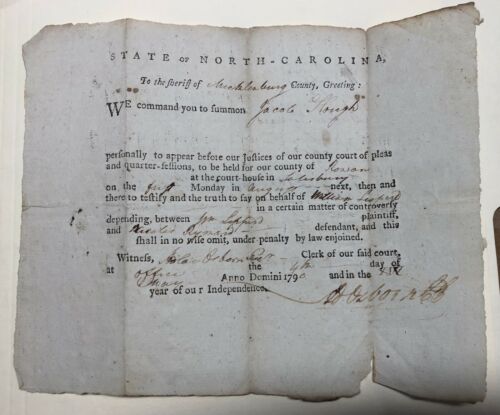 STATE OF NORTH-CAROLINA,
To the sheriff of Mecklenburg County, Greeting:
WE command you to summon Jacob Hough
personally to appear before our Justices of our county court of pleas
and quarter-sessions, to be held for our county of Rowan
at the court-house in Salisbury
on the first Monday in August next, then and
there to testify and the truth to say on behalf of William
in a certain matter of controversy
depending, between Wm plaintiff,
and defendant, and this
shall in no wise omit, under penalty by law enjoined.
Witness, Clerk of our said court,
at office the 4th day of
May Anno Domini 1790 and in the XIV
year of our Independence.